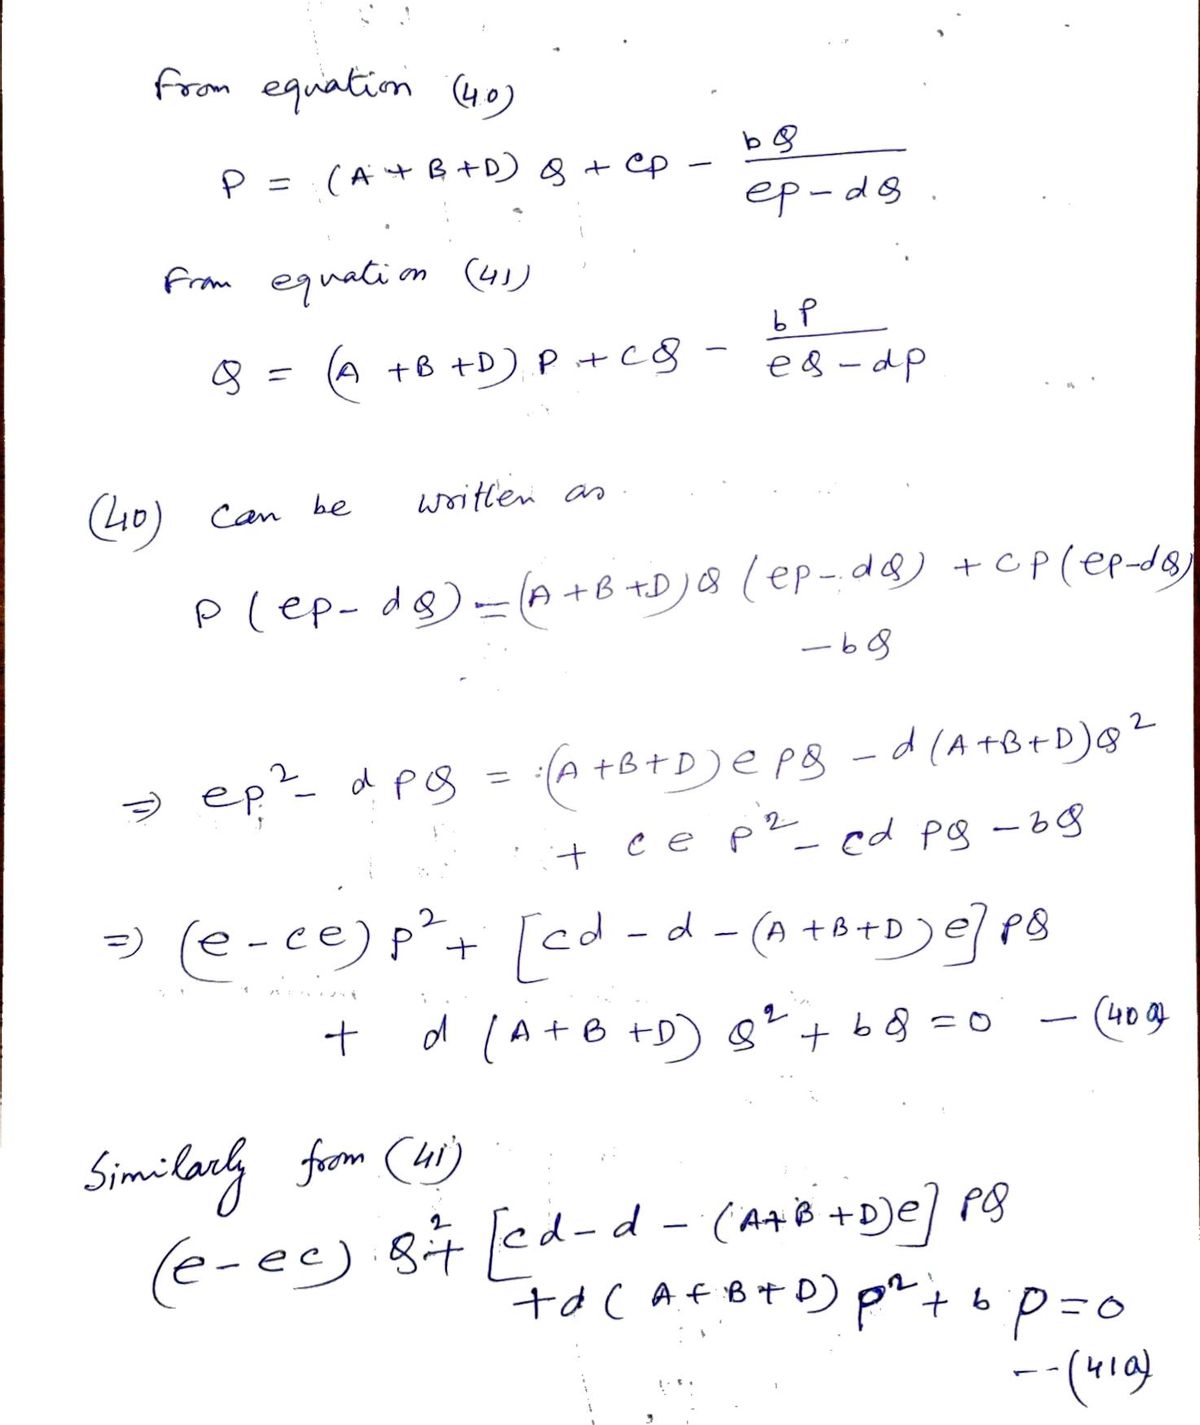 From equation (40)
P = (A + B + D) Q + CP - bQ / eP - dQ .
From equation (41)
Q = (A + B + D) P + CQ - bP / eQ - dP
(40) can be written as
P (eP - dQ) = (A + B + D) Q (eP - dQ) + CP (eP - dQ)
- bQ
⇒ eP² - dPQ = (A + B + D) e PQ - d (A + B + D) Q²
+ ce P² - cd PQ - bQ
⇒ (e - ce) P² + [cd - d - (A + B + D) e] PQ
+ d (A + B + D) Q² + bQ = 0 — (40a)
Similarly from (41)
(e - ec) Q² + [cd - d - (A + B + D) e] PQ
+ d (A + B + D) P² + b P = 0
-- (41a)